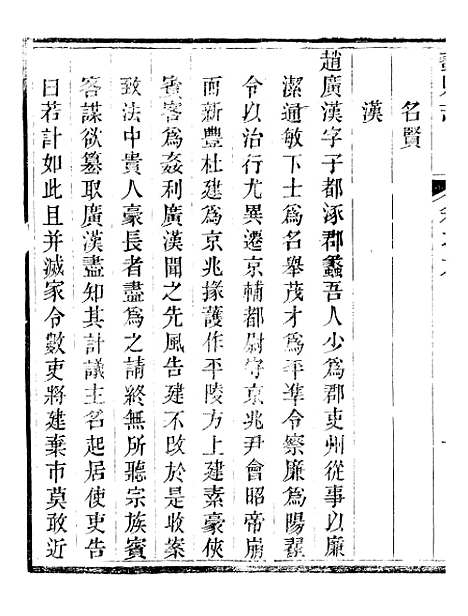 名賢
漢
趙廣漢字子都涿郡蠡吾人少為郡吏州從事以廉
潔通敏下士為名舉茂才為平準令察廉為陽翟
令以治行尤異遷京輔都尉守京兆尹會昭帝崩
而新豐杜建為京兆掾護作平陵方上建素豪俠
賓客為姦利廣漢聞之先風告建不改於是收案
致法中貴人豪長者盡為之請終無所聽宗族賓
客謀欲篡取廣漢盡知其計議主名起居使吏告
曰若計如此且并滅家令數吏將建棄市莫敢近